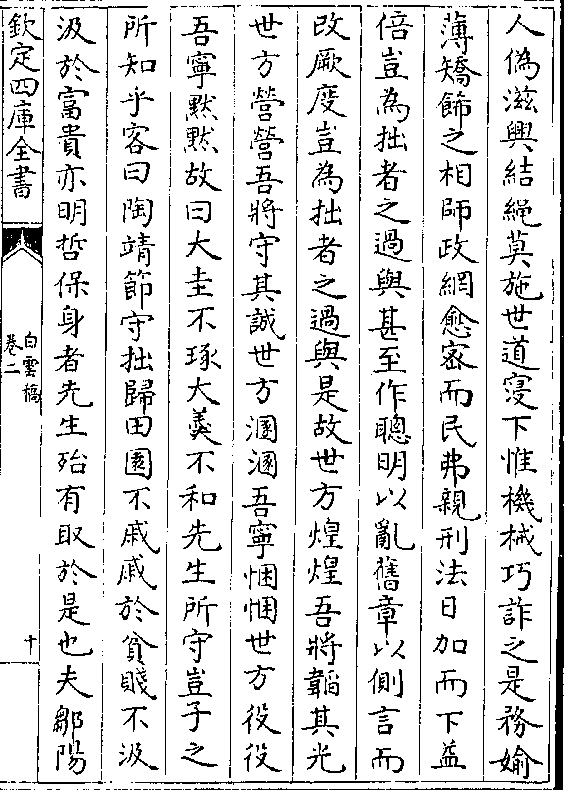 人偽滋興結䋲莫施世道寖下惟機械巧詐之是務媮
薄矯飾之相師政網愈宻而民弗親刑法日加而下益
倍豈為拙者之過與甚至作聰明以亂舊章以側言而
改厥度豈為拙者之過與是故世方煌煌吾將韜其光
世方營營吾將守其誠世方溷溷吾寧悃悃世方役役
吾寧黙黙故曰大圭不琢大羮不和先生所守豈子之
所知乎客曰陶靖節守拙歸田園不戚戚於貧賤不汲
汲於富貴亦明哲保身者先生殆有取於是也夫鄒陽
欽定四庫全書
白雲稿
卷二
十